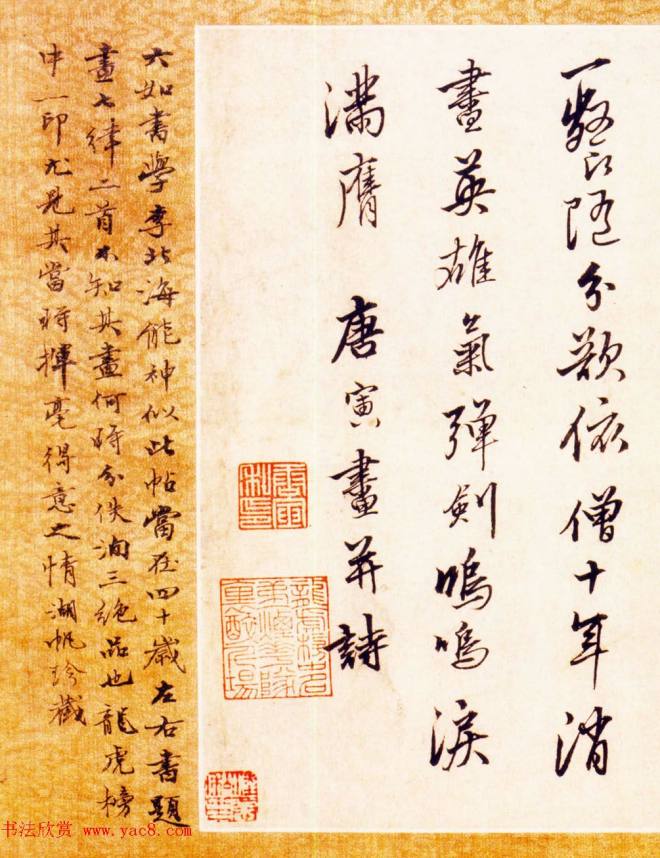 一餐隨分欲依僧十年消
盡英雄氣彈劍嗚嗚淚
滿膺 唐寅畫并詩
六如書學李北海能神似此帖當在四十歲左右書題
畫七律二首不知其畫何時分佚洵三絶品也龍虎榜
中一印尤見其當時揮毫得意之情湖帆珍藏
书法欣赏 www.yac8.com